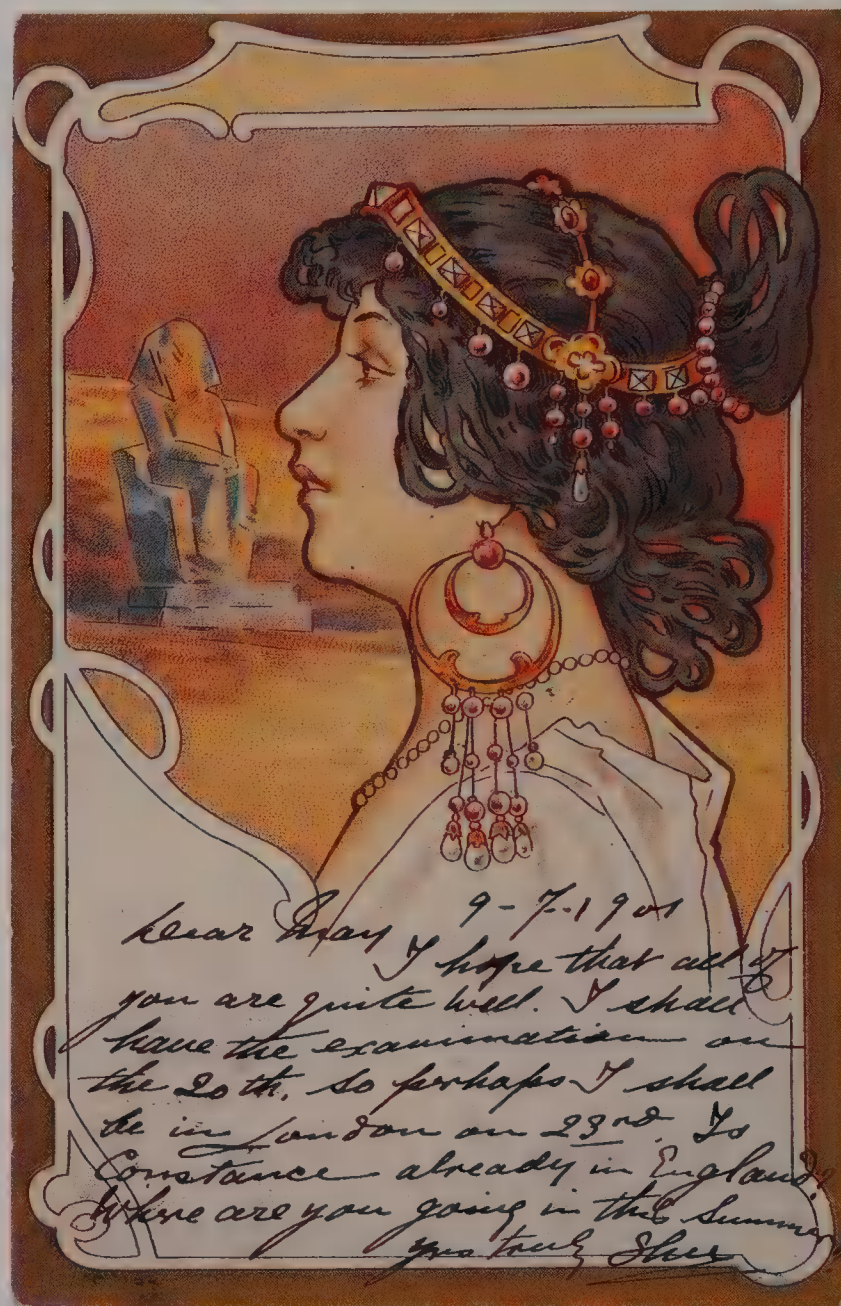 9-7-1901
Dear May
I hope that all of
you are quite well. I shall
have the examination on
the 20th, so perhaps I shall
be in London on 23rd. Is
Constance already in England,
Where are you going in this Summer,
yrs truly